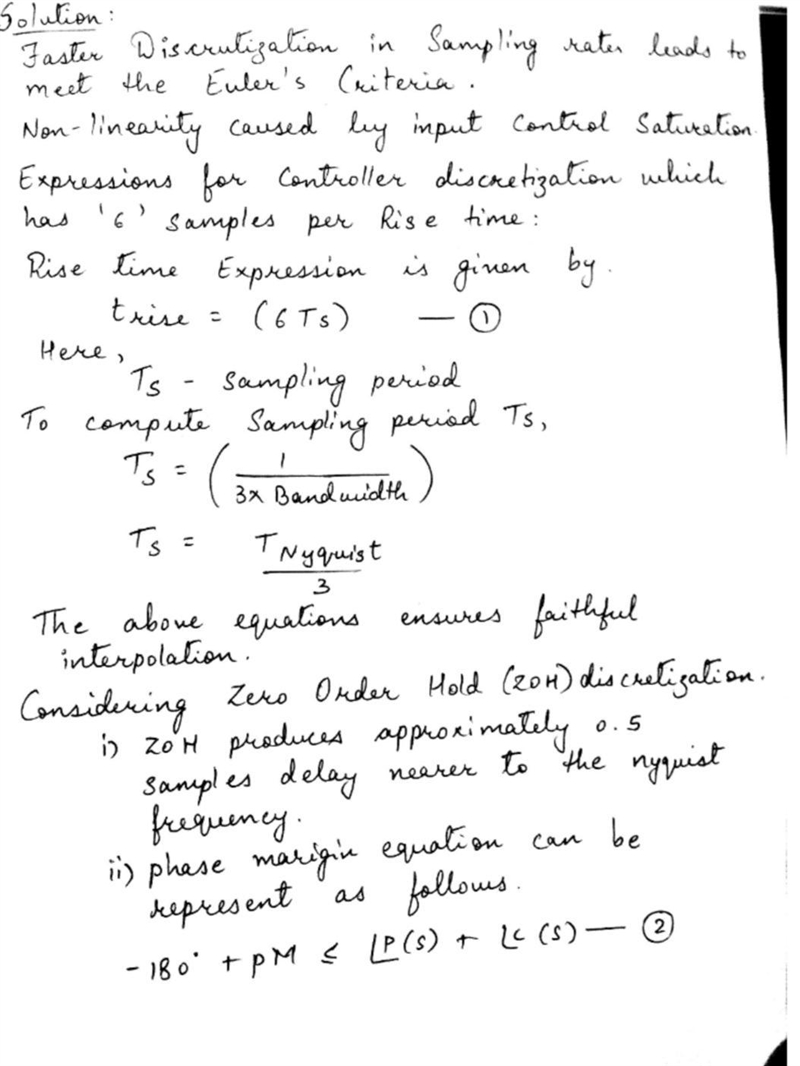 Solution:
Faster Discrutization in Sampling rates leads to
meet the Euler's Criteria.
Non-linearity caused by input control Saturation.
Expressions for Controller discretization which
has '6' samples per Rise time:
Rise time Expression is given by.
trise = (6 Ts) — ①
Here,
Ts - Sampling period
To compute Sampling period Ts,
Ts = ( 1 / 3x Bandwidth )
Ts = T Nyquist / 3
The above equations ensures faithful
interpolation.
Considering Zero Order Hold (ZOH) discretization.
i) ZOH produces approximately 0.5
samples delay nearer to the nyquist
frequency.
ii) phase marigin equation can be
represent as follows.
-180° + PM ≤ ∠P(s) + ∠C(s) — ②